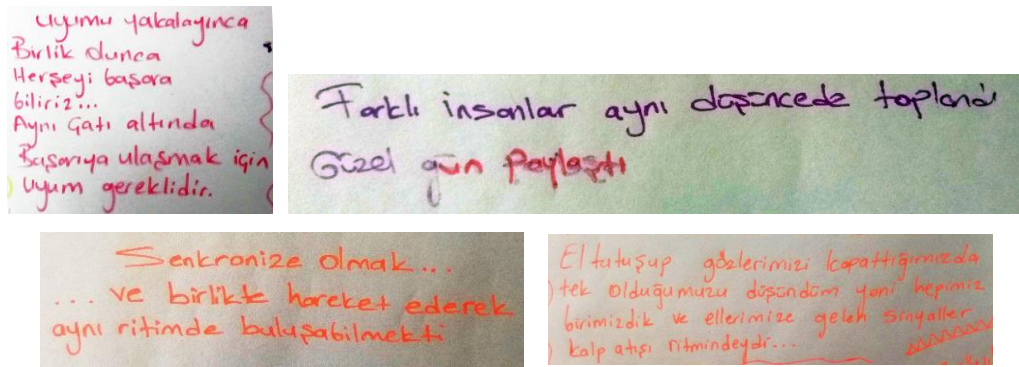 Uyumu yakalayınca
Birlik olunca
Herşeyi başara
biliriz...
Aynı Çatı altında
Başarıya ulaşmak için
Uyum gereklidir.
Farklı insanlar aynı düşüncede toplandı
Güzel gün paylaştı
Senkronize olmak...
... ve birlikte hareket ederek
aynı ritimde buluşabilmekti
El tutuşup gözlerimizi kapattığımızda
tek olduğumuzu düşündüm yani hepimiz
birimizdik ve ellerimize gelen sinyaller
kalp atışı ritmindeydi...